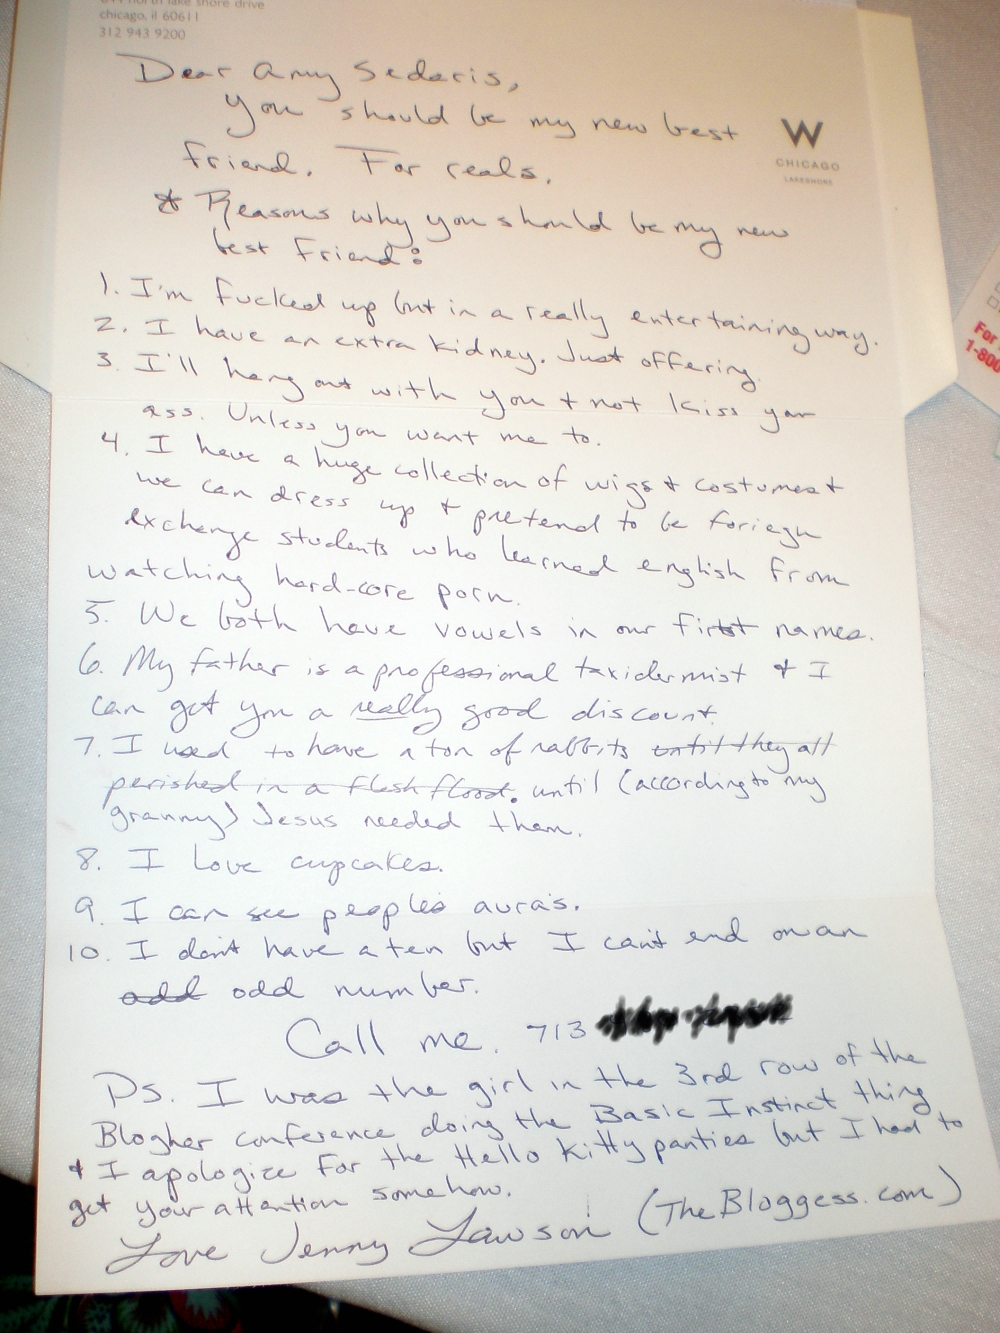 lake shore drive
chicago, il 60611
312 943 9200
W
CHICAGO
LAKESHORE
Dear Amy Sedaris,
you should be my new best
friend. For reals.
* Reasons why you should be my new
best friend:
1. I'm fucked up but in a really entertaining way.
2. I have an extra kidney. Just offering.
3. I'll hang out with you + not kiss your
ass. Unless you want me to.
4. I have a huge collection of wigs + costumes +
we can dress up + pretend to be foriegn
exchange students who learned english from
watching hard-core porn.
5. We both have vowels in our first names.
6. My father is a professional taxidermist + I
can get you a really good discount.
7. I used to have a ton of rabbits until they all
perished in a flash flood. until (according to my
granny) Jesus needed them.
8. I love cupcakes.
9. I can see people's aura's.
10. I don't have a ten but I can't end on an
odd odd number.
Call me. 713
Ps. I was the girl in the 3rd row of the
Blogher conference doing the Basic Instinct thing
+ I apologize for the Hello Kitty panties but I had to
get your attention somehow.
Love Jenny Lawson (TheBloggess.com)
For
1-800